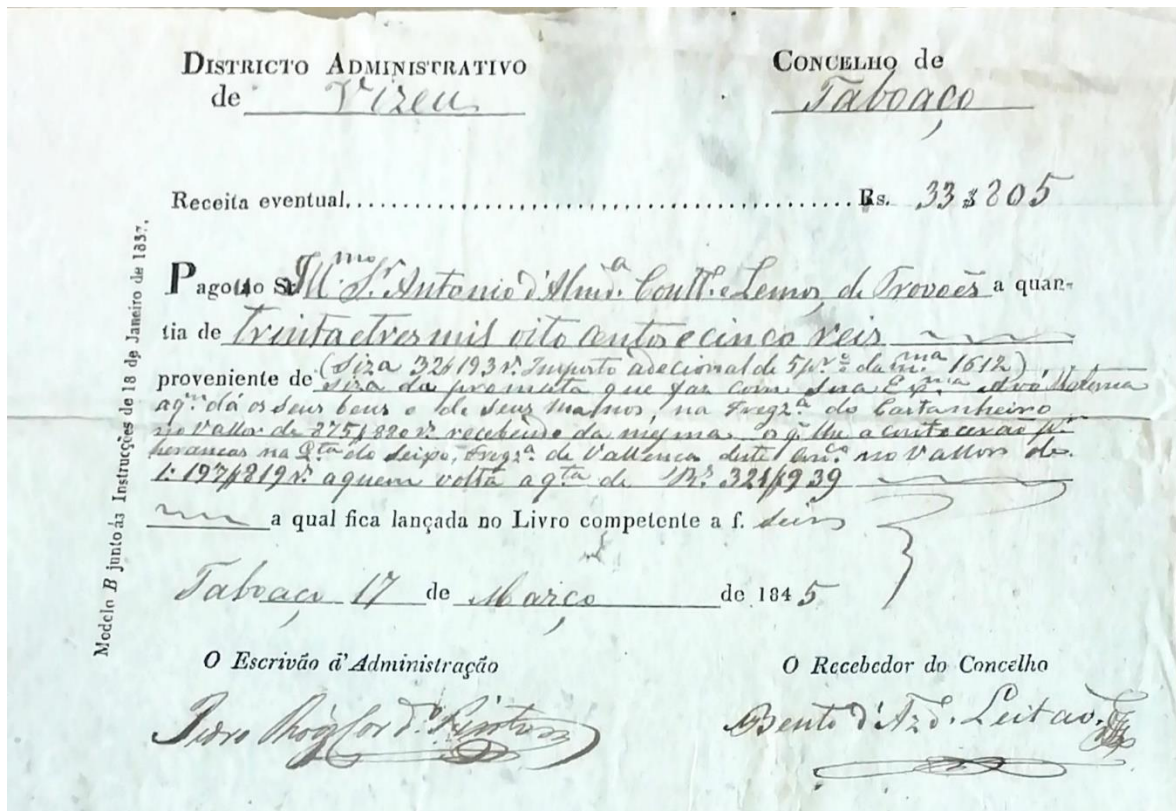 DISTRICTO ADMINISTRATIVO
de Vizeu
CONCELHO de
Taboaço
Receita eventual........................................ Rs. 33$805
Pagou o Sr. Ill.mo Sr. Antonio d'Almd.a Cout.e Lemos, de Trovões a quan-
tia de trinta e tres mil oito centos e cinco reis
proveniente de (Siza 32$193 rs. Imposto adecional de 5 p.r c.o da m.ma 1612)
Siza da premuta que faz com sua Exp.ma Avó Materna
aq.m dá os seus bens e de seus manos, na Fregz.a do Castanheiro
no Vallor de 875$880 rs. recebendo da mesma o q. lhe aconteceráo p.r
heranças na Q.ta do Seipo, Fregz.a de Vallença deste no Vallor de
1:197$819 rs. aquem volta a q.ta de Rs. 321$939
a qual fica lançada no Livro competente a f. seis
Taboaço 17 de Março de 1845
O Escrivão d'Administração
O Recebedor do Concelho
Pedro
Bento d'Azd.o Leitão
Modelo B junto ás Instrucções de 18 de Janeiro de 1837.